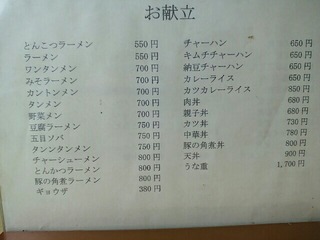 お献立
とんこつラーメン 550 円
ラーメン 550 円
ワンタンメン 700 円
みそラーメン 700 円
カントンメン 700 円
タンメン 700 円
野菜メン 700 円
豆腐ラーメン 750 円
五目ソバ 750 円
タンンタンメン 750 円
チャーシューメン 800 円
とんかつラーメン 800 円
豚の角煮ラーメン 800 円
ギョウザ 380 円
チャーハン 650 円
キムチチャーハン 650 円
納豆チャーハン 650 円
カレーライス 650 円
カツカレーライス 850 円
肉丼 680 円
親子丼 680 円
カツ丼 730 円
中華丼 780 円
豚の角煮丼 800 円
天丼 900 円
うな重 1,700 円